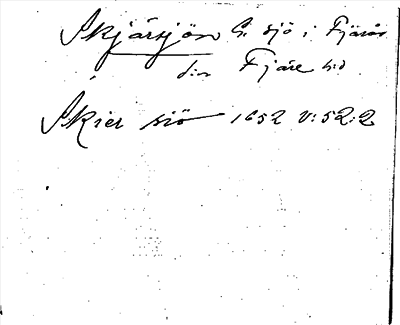 Skjärsjön h. sjö i Fjärås
s:n Fjäre h:d
Skier siö 1652 V:52:2